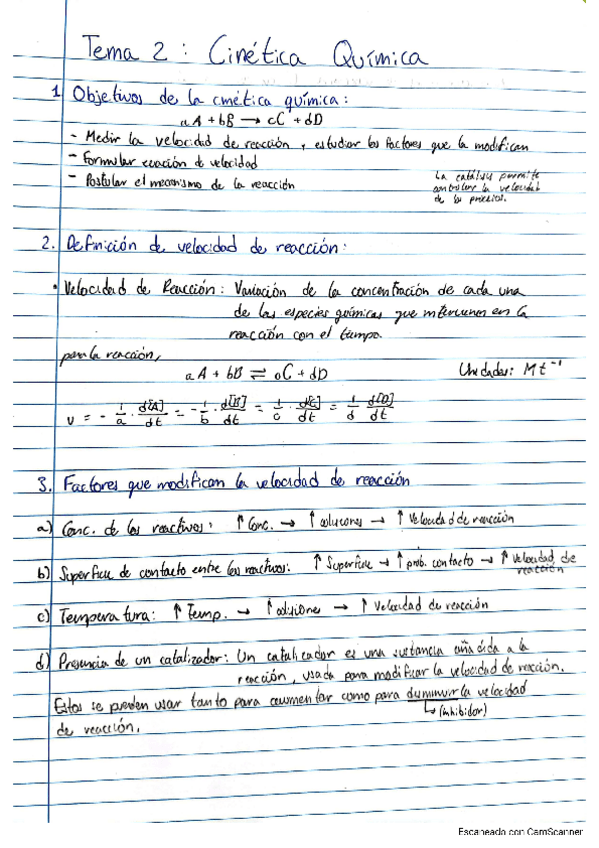 Tema 2: Cinética Química
1 Objetivos de la cinética química:
aA + bB → cC + dD
- Medir la velocidad de reacción, estudiar los factores que la modifican
- Formular ecuación de velocidad
- Postular el mecanismo de la reacción
La catálisis permite
controlar la velocidad
de los procesos.
2. Definición de velocidad de reacción:
• Velocidad de Reacción: Variación de la concentración de cada una
de las especies químicas que intervienen en la
reacción con el tiempo.
para la reacción,
aA + bB ⇌ cC + dD
Unidades: M t⁻¹
v = - 1/a · d[A]/dt = - 1/b · d[B]/dt = 1/c · d[C]/dt = 1/d d[D]/dt
3. Factores que modifican la velocidad de reacción
a) Conc. de los reactivos: ↑ Conc. → ↑ colisiones → ↑ Velocidad de reacción
b) Superficie de contacto entre los reactivos: ↑ Superficie → ↑ prob. contacto → ↑ Velocidad de
reacción
c) Temperatura: ↑ Temp. → ↑ colisiones → ↑ Velocidad de reacción
d) Presencia de un catalizador: Un catalizador es una sustancia añadida a la
reacción, usada para modificar la velocidad de reacción.
Estos se pueden usar tanto para aumentar como para disminuir la velocidad
↳ (inhibidor)
de reacción.
Escaneado con CamScanner